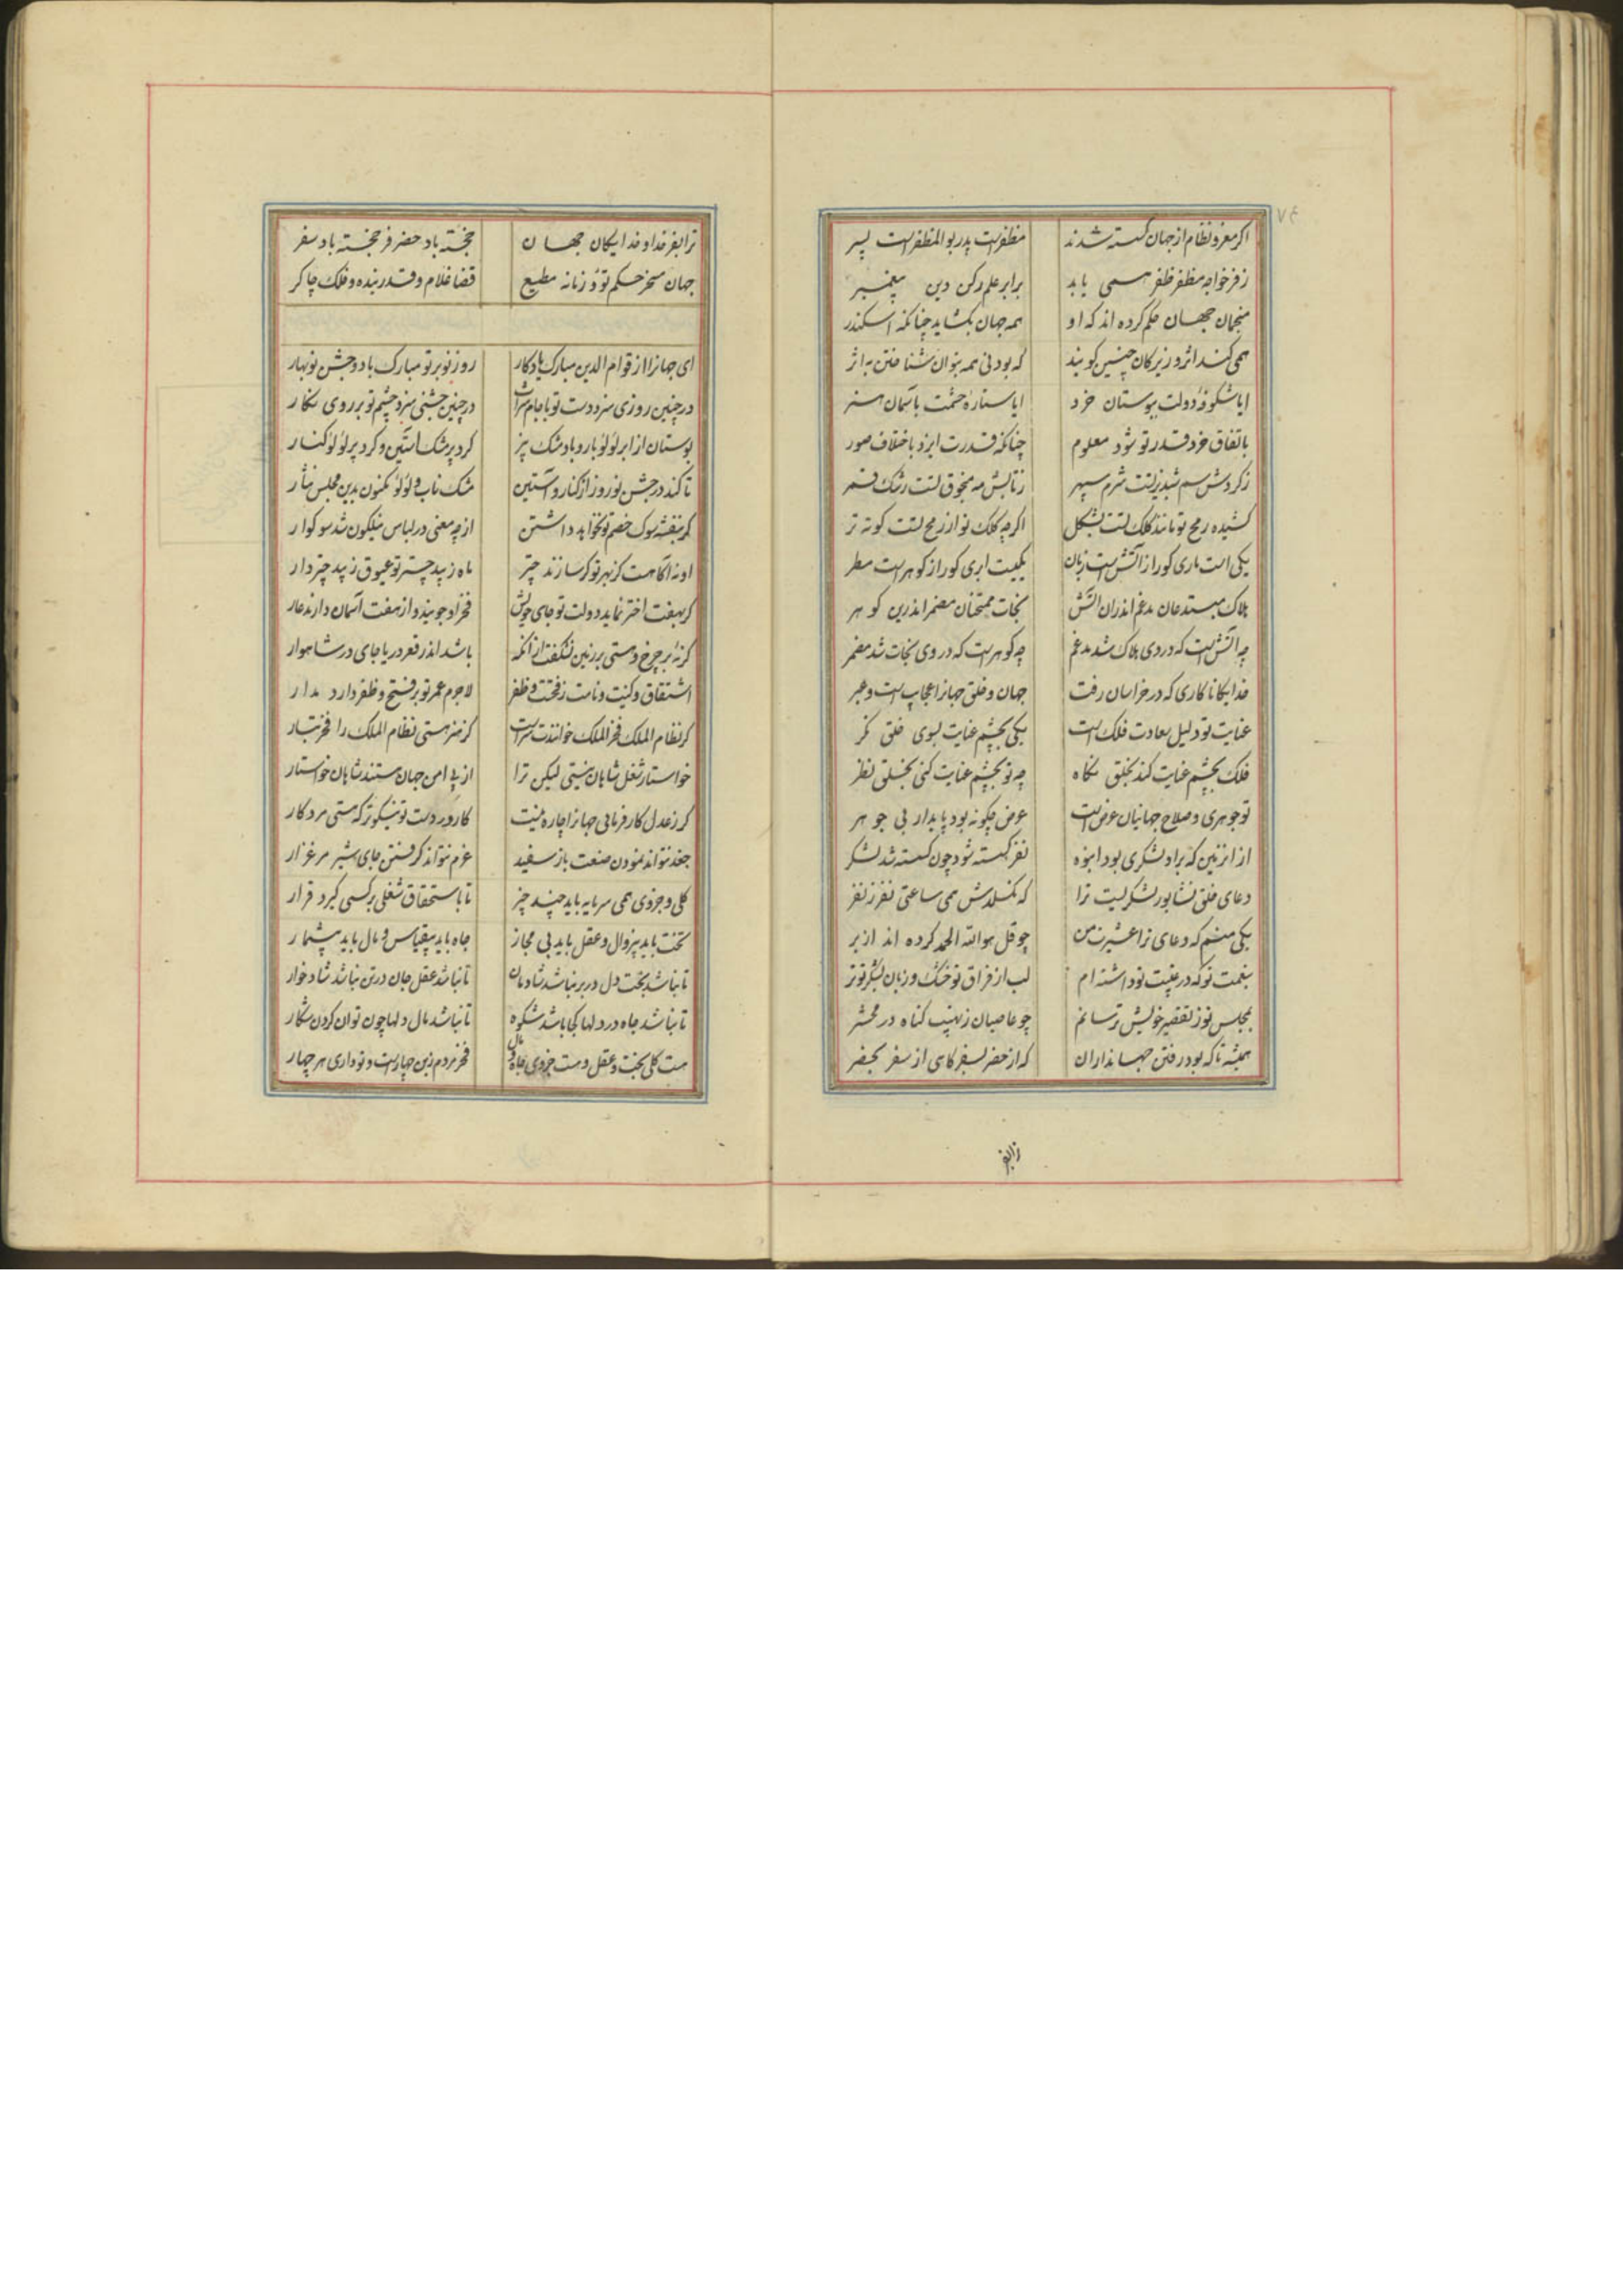 ۷۴
اکر معز و نظام از جهان کسسته شدند مظفرست پدر بوالمظفرست پسر
ز فر خواجه مظفر ظفر همی یابد برابر علم رکن دین پیغمبر
منجمان جهان حکم کرده اند که او همه جهان بکشاید چنانکه اسکندر
همی کند اثر و زیرکان چنین کویند که بودنی همه بتوان شناختن به اثر
ایا شکوفهٔ دولت ببوستان خرد ایا ستارهٔ حشمت باسمان هنر
باتفاق خرد قدر تو شود معلوم چنانکه قدرت ایزد باختلاف صور
ز کردش سم شبدیز تست شرم سپهر ز تابش مه منجوق تست رشک قمر
کشیده رمح تو مانند کلک تست بشکل اکر چه کلک تو از رمح تست کوته تر
یکی است ماری کورا ز آتش است زبان یکیست ابری کورا ز کوهرست مطر
هلاک مبتدعان مدغم اندران آتش نجات ممتحنان مضمر اندرین کوهر
چه آتش است که در وی هلاک شد مدغم چه کوهرست که در وی نجات شد مضمر
خدایکانا کاری که در خراسان رفت جهان و خلق جهانرا عجایب است و عبر
عنایت تو دلیل سعادت فلک است یکی بچشم عنایت بسوی خلق نکر
فلک بچشم عنایت کند بخلق نکاه چو تو بچشم عنایت کنی بخلق نظر
تو جوهری و صلاح جهانیان عرض است عرض چکونه بود پایدار بی جوهر
از انزمین که براد لشکری بود انبوه نفر کسسته شود چون کسسته شد لشکر
دعای خلق نشابور لشکریست ترا که نکسلدش همی ساعتی نفر ز نفر
یکی منم که دعای ترا عشیرت من چو قل هو الله الحمد کرده اند از بر
بنعمت تو که در غیبت تو داشته ام لب از فراق تو خشک و زبان بشکر تو تر
بمجلس تو ز تقصیر خویش ترسانم چو عاصیان ز نهیب کناه در محشر
همیشه تا که بود رفتن جهانداران که از حضر بسفر کاهی از سفر بحضر
ترا بفر
ترا بفر خداوند خدایکان جهان خجسته باد حضر فر خجسته باد سفر
جهان مسخر حکم تو و زمانه مطیع قضا غلام و قدر بنده و فلک چاکر
ای جهانرا از قوام الدین مبارک یادکار روز نو بر تو مبارک باد و جشن نوبهار
در چنین روزی سزد دست تو با جام شراب در چنین جشنی سزد چشم تو بر روی نکار
بوستان از ابر لؤلؤ بار و باد مشک بیز کرد پر مشک آستین و کرد پر لؤلؤ کنار
تا کند در جشن نوروز از کنار و آستین مشک ناب و لؤلؤ مکنون بدین مجلس نثار
کر بنفشه سوک خصم تو نخواهد داشتن از چه معنی در لباس نیلکون شد سوکوار
او نه آکاهست کز بهر تو کر سازند چتر ماه زیبد چتر تو عیوق زیبد چتردار
کر بهفت اختر نماید دولت تو جای خویش فخر او جویند و از هفت آسمان دارند عار
کر نهٔ بر چرخ و هستی بر زمین نشکفت از آنکه باشد اندر قعر دریا جای در شاهوار
اشتقاق و کنیت و نامت ز فتحت و ظفر لاجرم عمر تو بر فتح و ظفر دارد مدار
کر نظام الملک فخر الملک خواندت سزاست کز هنر هستی نظام الملک را فخر تبار
خواستار شغل شاهان نیستی لیکن ترا از پی امن جهان هستند شاهان خواستار
کر ز عدل کارفرمائی جهانرا چاره نیست کار در دست تو نیکوتر که هستی مرد کار
جغد نتواند نمودن صنعت باز سفید غرم نتواند کرفتن جای شیر مرغزار
کلی و جزوی همی سرمایه باید چند چیز تا باستحقاق شغلی بر کسی کیرد قرار
بخت باید بیزوال و عقل باید بی مجاز جاه باید بیقیاس و مال باید بیشمار
تا نباشد بخت دل در بر نباشد شادمان تا نباشد عقل جان در تن نباشد شادخوار
تا نباشد جاه در دلها کجا باشد شکوه تا نباشد مال دلها چون توان کردن شکار
هست کلی بخت و عقل و هست جزوی جاه و مال فخر مردم زین چهارست و تو داری هر چهار